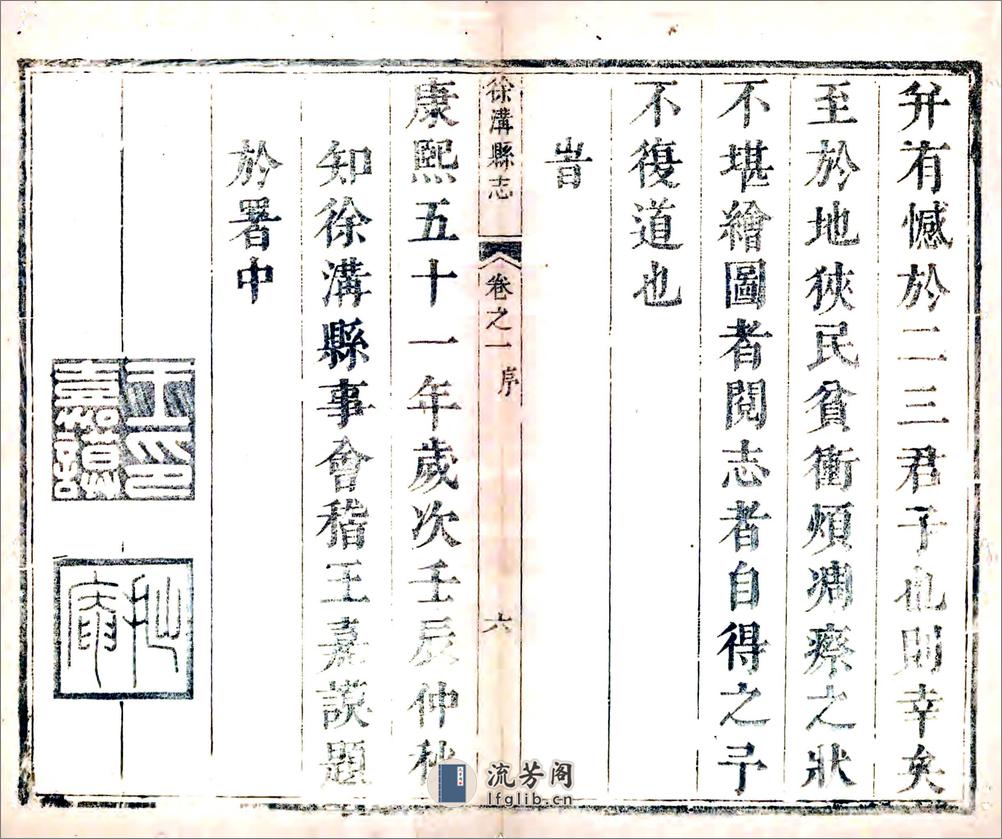 并有憾於二三君子也則幸矣
至於地狹民貧衝煩凋瘵之狀
不堪繪圖者閱志者自得之予
不復道也
旹
徐溝縣志 卷之一 序 六
康熙五十一年歲次壬辰仲秋
知徐溝縣事會稽王嘉謨題
於署中
王印嘉謨
拙庵
流芳阁
lfglib.cn